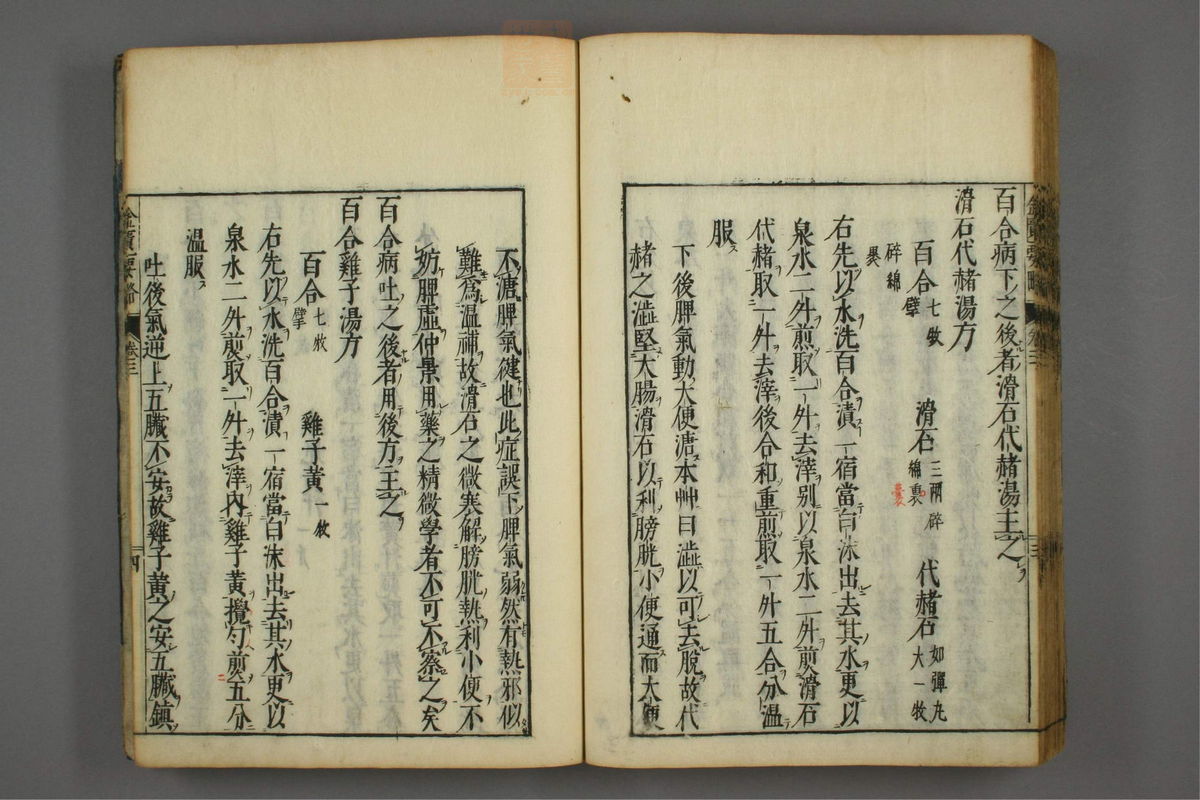 百合病下之後者滑石代赭湯主之
滑石代赭湯方
百合七枚擘 滑石三兩碎綿裹 代赭石如彈丸大一枚
碎綿裹
右先以水洗百合漬一宿當白沫出去其水更以
泉水二升煎取一升去滓别以泉水二升煎滑石
代赭取一升去滓後合和重煎取一升五合分温
服
下後脾氣動大便溏本艸曰澁以可去脫故代
赭之澁堅大腸滑石以利膀胱小便通而大便
金匱要略 卷三 三
不溏脾氣健也此症誤下脾氣弱然有熱邪似
難爲温補故滑石之微寒解膀胱熱利小便不
妨脾虚仲景用藥之精微學者不可不察之矣
百合病吐之後者用後方主之
百合雞子湯方
百合七枚擘 雞子黄一枚
右先以水洗百合漬一宿當白沫出去其水更以
泉水二升煎取一升去滓内雞子黄攪勻煎五分
温服
吐後氣逆上五臟不安故雞子黄之安五臟鎮
金匱要略 卷三 四